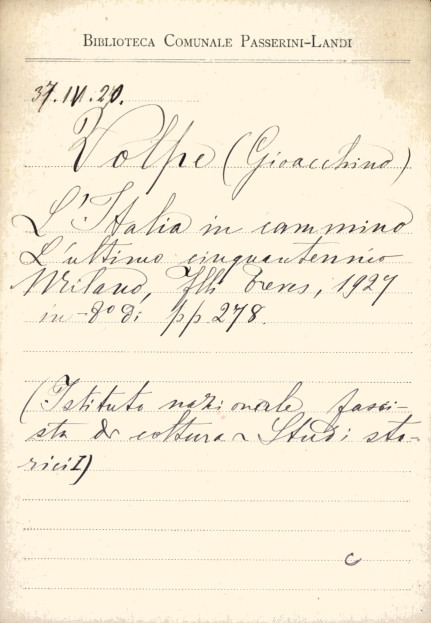 BIBLIOTECA COMUNALE PASSERINI-LANDI
37.IV.20.
Volpe (Gioacchino)
L'Italia in cammino
L'ultimo cinquantennio
Milano, Flli Treves, 1927
in-8° di pp 278.
(Istituto nazionale fasci-
sta di coltura ~ Studi sto-
rici I)
C